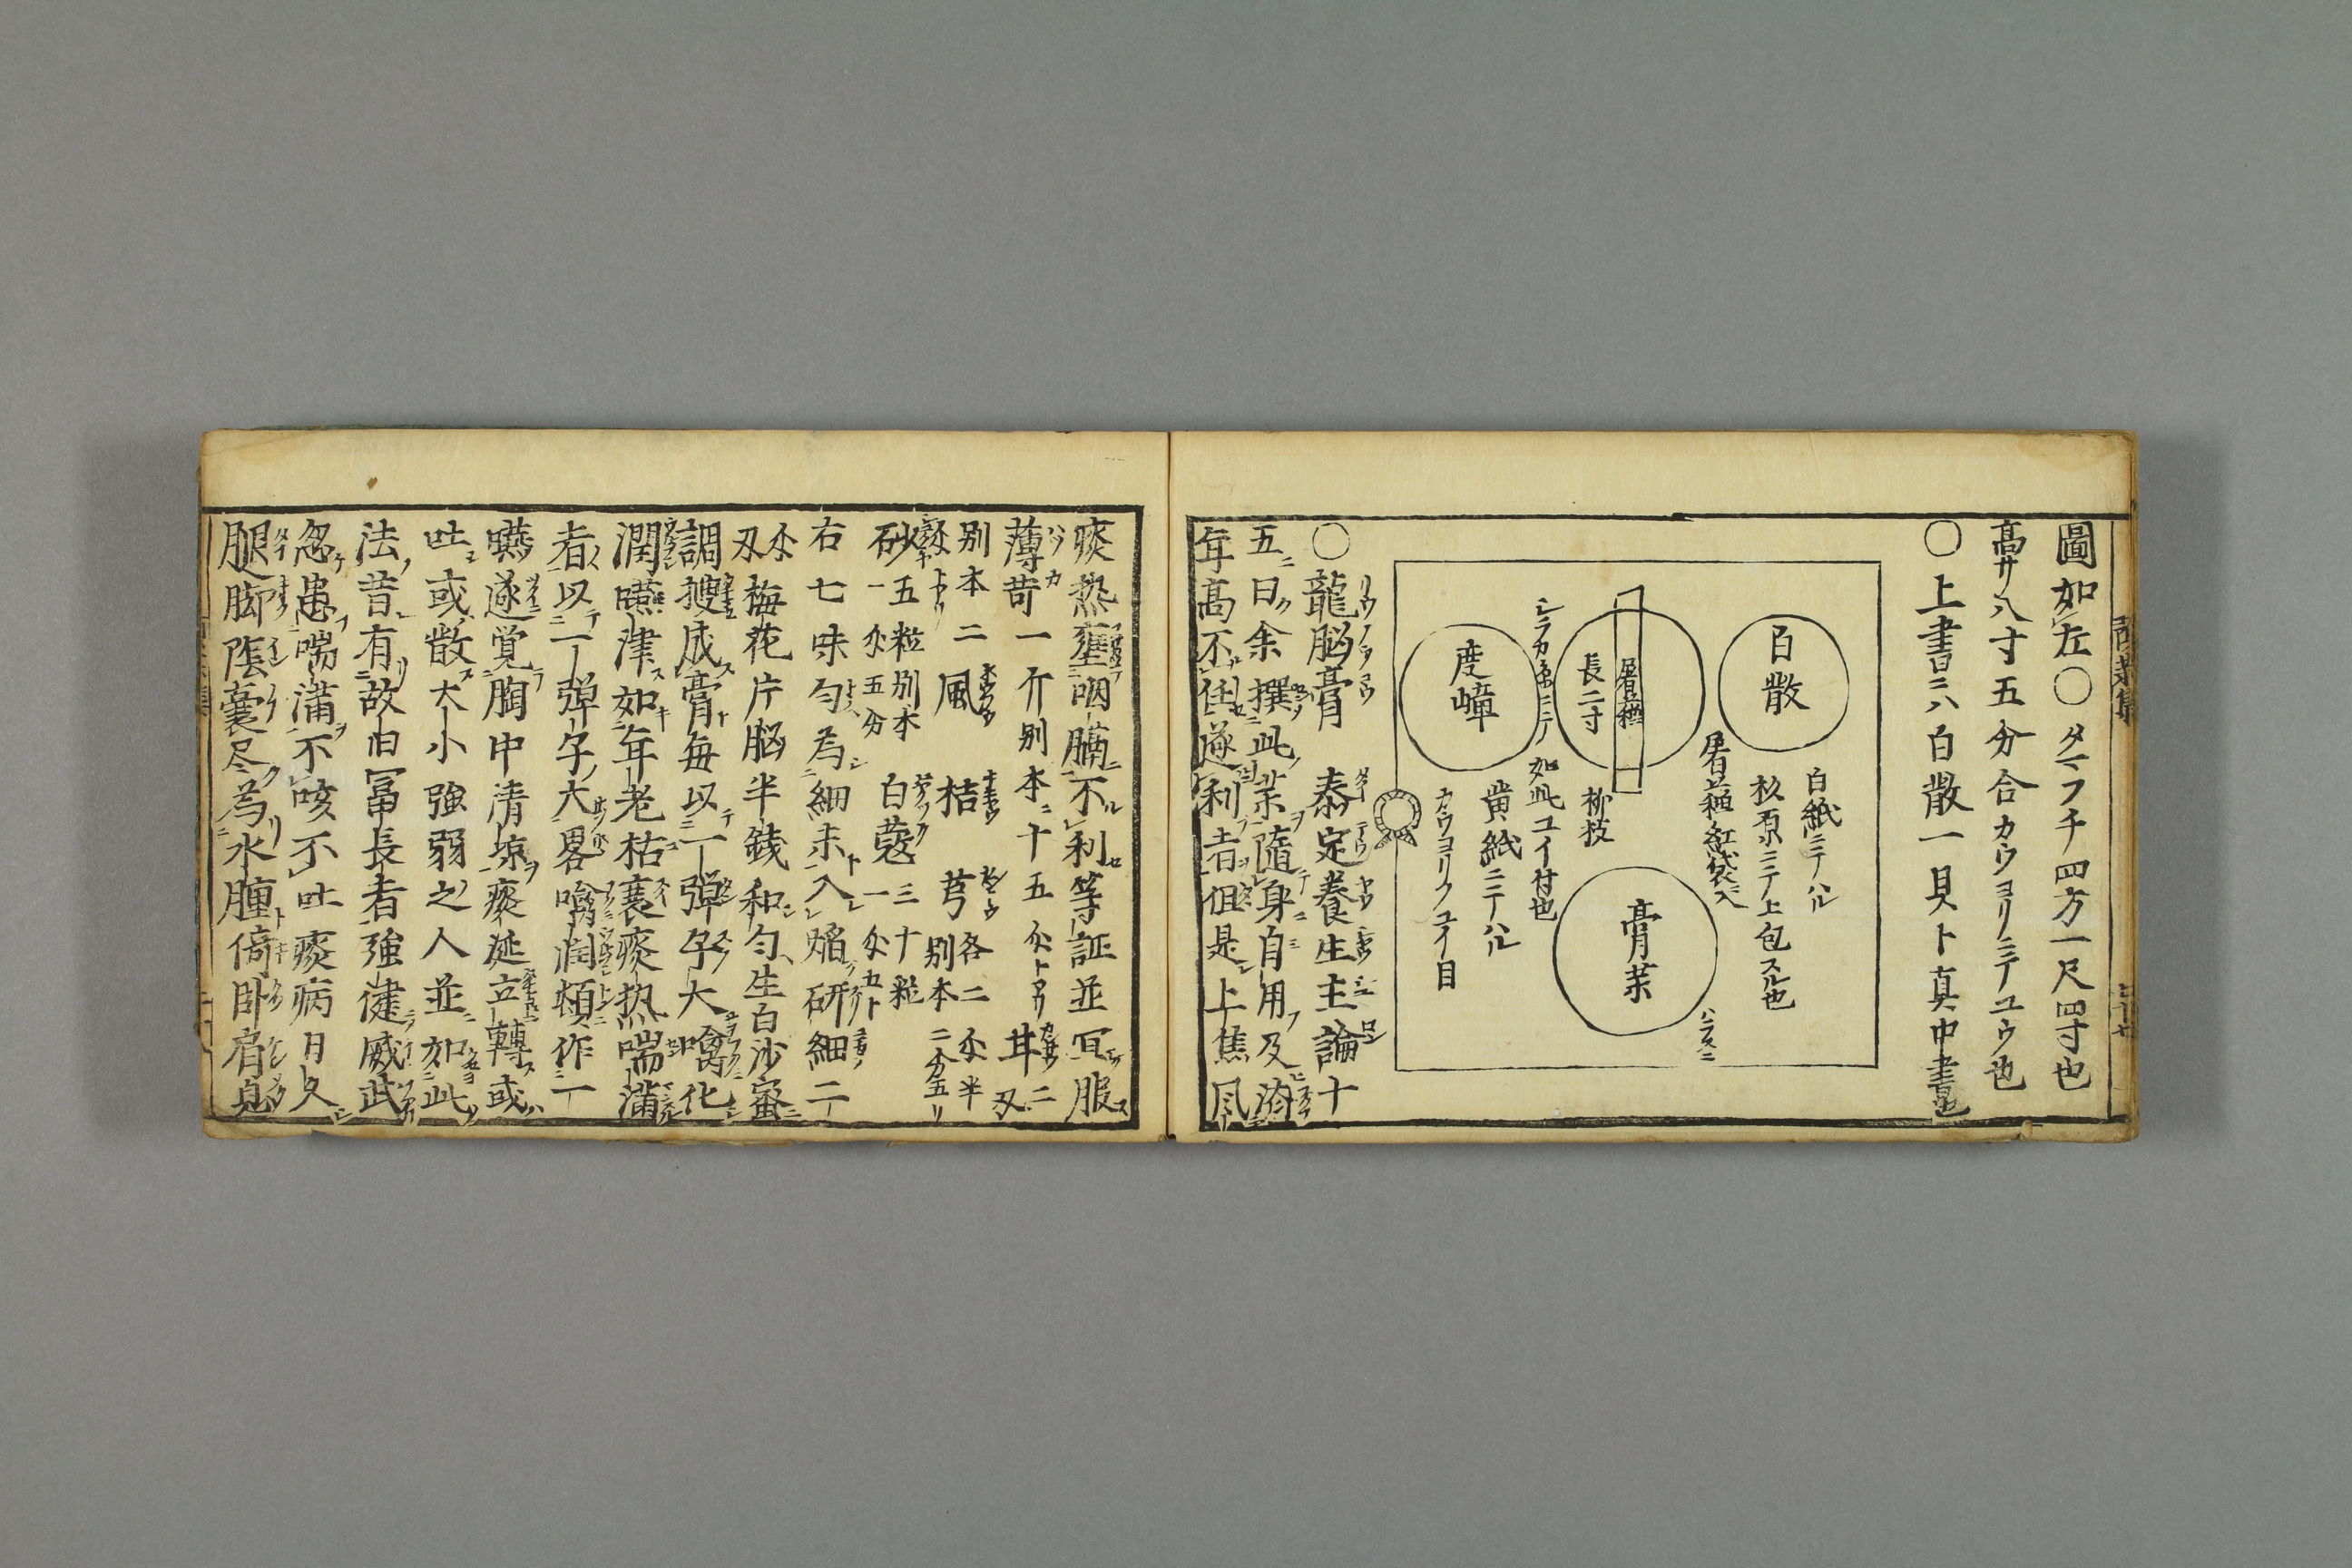 圖如左〇タヽフチ四方一尺四寸也
高サ八寸五分合カウヨリニテユウ也
〇上書ニハ白散一具ト真中書也
白散
白紙ニテハル
杉原ニテ上包スル也
屠蘇紅袋入
屠蘇
長二寸
柳枝
膏薬
ハニス二
シラカ糸ニテ
如此ユイ付也
度嶂
黄紙ニテハル
カウヨリノユイ目
〇龍脳膏 泰定養生主論十
五曰余撰此薬隨身自用及済
年高不任遂利者但是上焦风
痰热壅咽膈不利等証並冝服
薄苛一斤別本十五分トアリ 甘二又
別本二 風 桔 芎各二分半別本二分五リ
砂五粒別本一分五分 白蔻三十粒一分五ト
右七味匀為細末入焔研細二
分又梅花片脳半銭和匀生白沙蜜
調搜成膏毎以一彈子大噙化
潤嚥津如年老枯衰痰热喘満
者以一彈子大畧噙潤頻作一
嚥遂覚胸中清凉痰延立轉或
吐或散大小強弱之人並如此
法昔有故旧冨長者強健威武
忽患喘満不咳不吐痰病月久
腿脚陰囊尽為水腫倚卧肩息